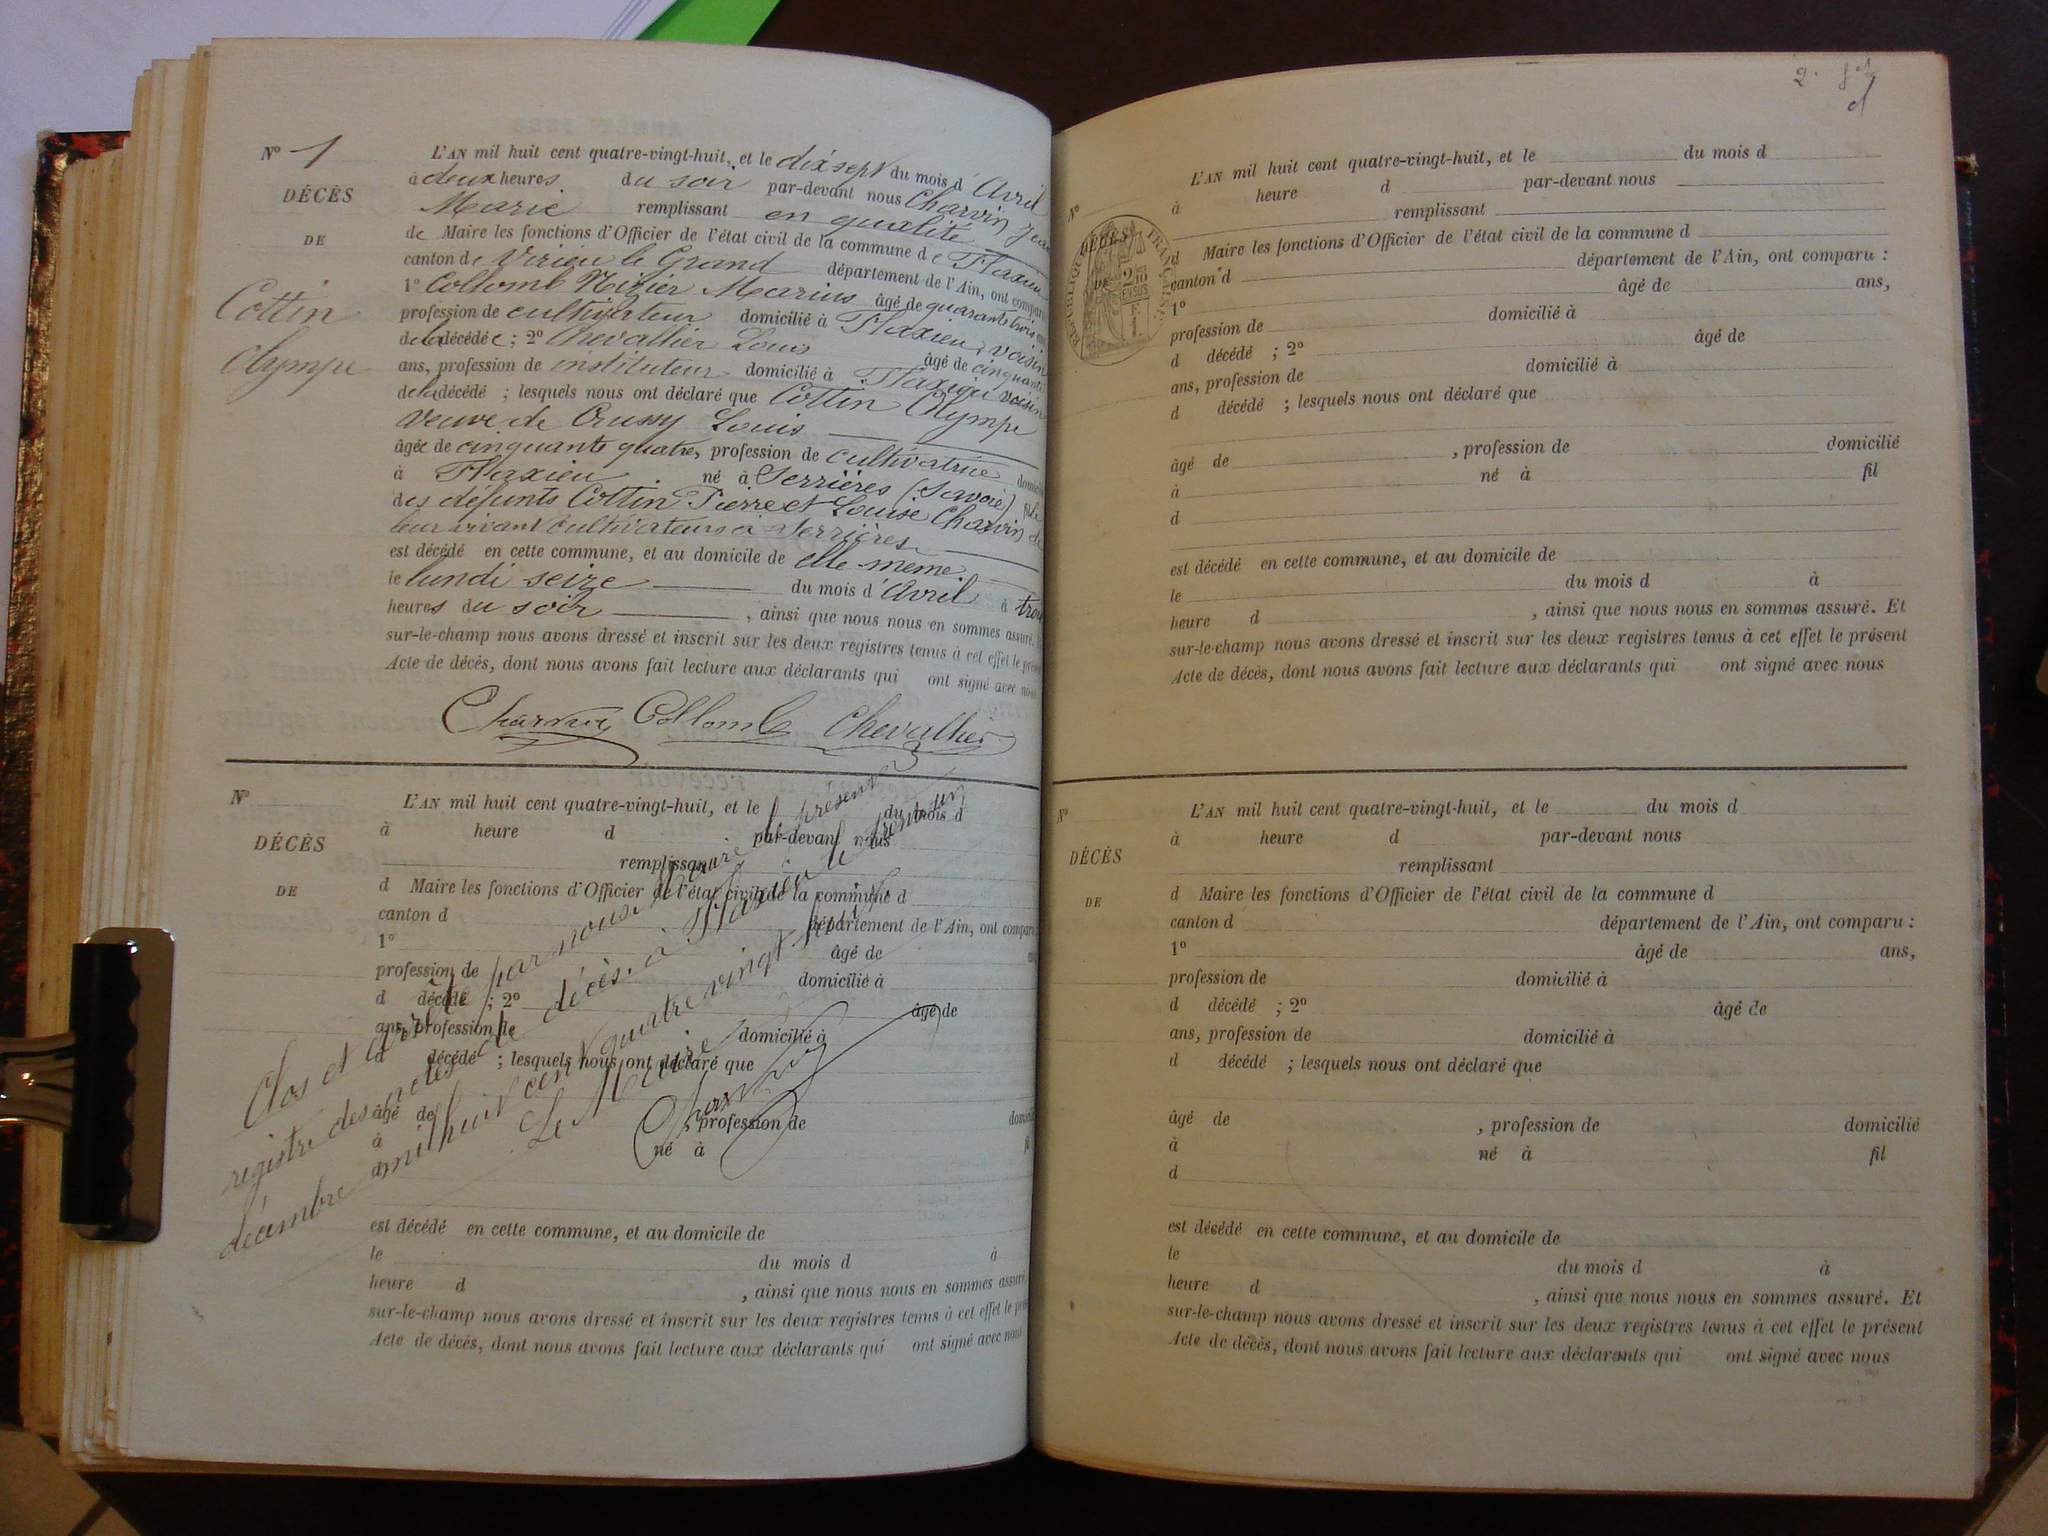 N° 1
DÉCÈS
DE
Cottin
Olympe
L'AN mil huit cent quatre-vingt-huit, et le dix sept du mois d'Avril
à deux heures du soir par-devant nous Charvin Jean
Marie remplissant en qualité
de Maire les fonctions d'Officier de l'état civil de la commune de Flaxieu
canton de Virieu le Grand département de l'Ain, ont comparu
1° Collomb Nizier Marius âgé de quarante trois ans
profession de cultivateur domicilié à Flaxieu, voisin
de la décédée ; 2° Chevallier Louis âgé de cinquante
ans, profession de instituteur domicilié à Flaxieu voisin
de la décédé ; lesquels nous ont déclaré que Cottin Olympe
veuve de Crussy Louis
âgée de cinquante quatre, profession de cultivatrice domicilié
à Flaxieu né à Serrières (Savoie) fille
des défunts Cottin Pierre et Louise Charvin de
leur vivant cultivateurs à Serrières
est décédé en cette commune, et au domicile de elle même
le lundi seize du mois d'Avril à trois
heures du soir , ainsi que nous nous en sommes assuré. Et
sur-le-champ nous avons dressé et inscrit sur les deux registres tenus à cet effet le présent
Acte de décès, dont nous avons fait lecture aux déclarants qui ont signé avec nous
Charvin Collomb Chevallier
N°
DÉCÈS
DE
L'AN mil huit cent quatre-vingt-huit, et le du mois d
à heure d par-devant nous
remplissant
d Maire les fonctions d'Officier de l'état civil de la commune d
canton d département de l'Ain, ont comparu
1° âgé de ans
profession de domicilié à
d décédé ; 2° âgé de
ans, profession de domicilié à
d décédé ; lesquels nous ont déclaré que
âgé de , profession de domicilié
à né à fil
d
est décédé en cette commune, et au domicile de
le du mois d à
heure d , ainsi que nous nous en sommes assuré.
sur-le-champ nous avons dressé et inscrit sur les deux registres tenus à cet effet le présent
Acte de décès, dont nous avons fait lecture aux déclarants qui ont signé avec nous
Clos et arrêté par nous Maire le présent
registre des actes de décès à Flaxieu le trente un
décembre mil huit cent quatre vingt huit
Le Maire
Charvin
2.
N°
RÉPUBLIQUE FRANÇAISE
DÉCÈS
DE
L'AN mil huit cent quatre-vingt-huit, et le du mois d
à heure d par-devant nous
remplissant
d Maire les fonctions d'Officier de l'état civil de la commune d
canton d département de l'Ain, ont comparu :
1° âgé de ans,
profession de domicilié à
d décédé ; 2° âgé de
ans, profession de domicilié à
d décédé ; lesquels nous ont déclaré que
âgé de , profession de domicilié
à né à fil
d
est décédé en cette commune, et au domicile de
le du mois d à
heure d , ainsi que nous nous en sommes assuré. Et
sur-le-champ nous avons dressé et inscrit sur les deux registres tenus à cet effet le présent
Acte de décès, dont nous avons fait lecture aux déclarants qui ont signé avec nous
N°
DÉCÈS
DE
L'AN mil huit cent quatre-vingt-huit, et le du mois d
à heure d par-devant nous
remplissant
d Maire les fonctions d'Officier de l'état civil de la commune d
canton d département de l'Ain, ont comparu :
1° âgé de ans,
profession de domicilié à
d décédé ; 2° âgé de
ans, profession de domicilié à
d décédé ; lesquels nous ont déclaré que
âgé de , profession de domicilié
à né à fil
d
est décédé en cette commune, et au domicile de
le du mois d à
heure d , ainsi que nous nous en sommes assuré. Et
sur-le-champ nous avons dressé et inscrit sur les deux registres tenus à cet effet le présent
Acte de décès, dont nous avons fait lecture aux déclarants qui ont signé avec nous